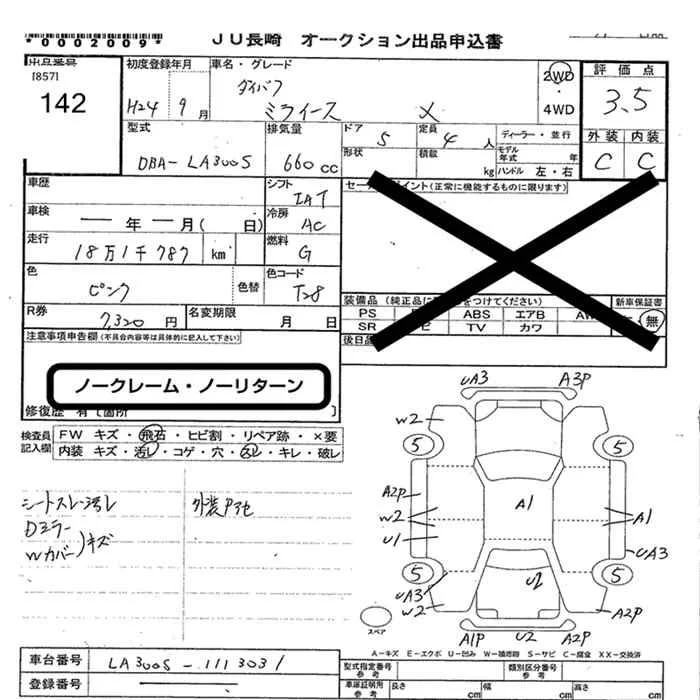 *0002009*
JU長崎 オークション出品申込書
出品番号
[857]
142
初度登録年月
H24 9月
車名・グレード
ダイハツ
ミライース
メ
2WD
4WD
評価点
3.5
外装 内装
C C
型式
DBA-LA300S
排気量
660cc
ドア
5
定員
4人
形状
積載
kg
ディーラー・並行
モデル年式 年
ハンドル 左・右
車歴
シフト
IAT
車検
年 月( 日)
冷房
AC
走行
18万1千787 km
燃料
G
色
ピンク
色替
色コード
T28
R券
7,320円
名変期限
月 日
装備品
新車保証書
無
PS
ABS
エアB
SR
TV
カワ
注意事項申告欄(不具合内容等は具体的に記入して下さい)
ノークレーム・ノーリターン
修復歴 有[箇所 ]
検査員記入欄
FW キズ・飛石・ヒビ割・リペア跡・×要
内装 キズ・汚レ・コゲ・穴・スレ・キレ・破レ
シートスレ・汚レ
Dミラー
Wカバー)キズ
UA3
A3P
W2
5
5
A2P
W2
U1
A1
A1
UA3
5
5
UA3
W2
U2
A2P
A1P
U2
A2P
スペア
A-キズ E-エクボ U-凹み W-補修跡 S-サビ C-腐食 XX-交換済
車台番号
LA300S-1113031
登録番号
型式指定番号
参考
類別区分番号
参考
車庫証明用
参考
長さ
cm
幅
cm
高さ
cm